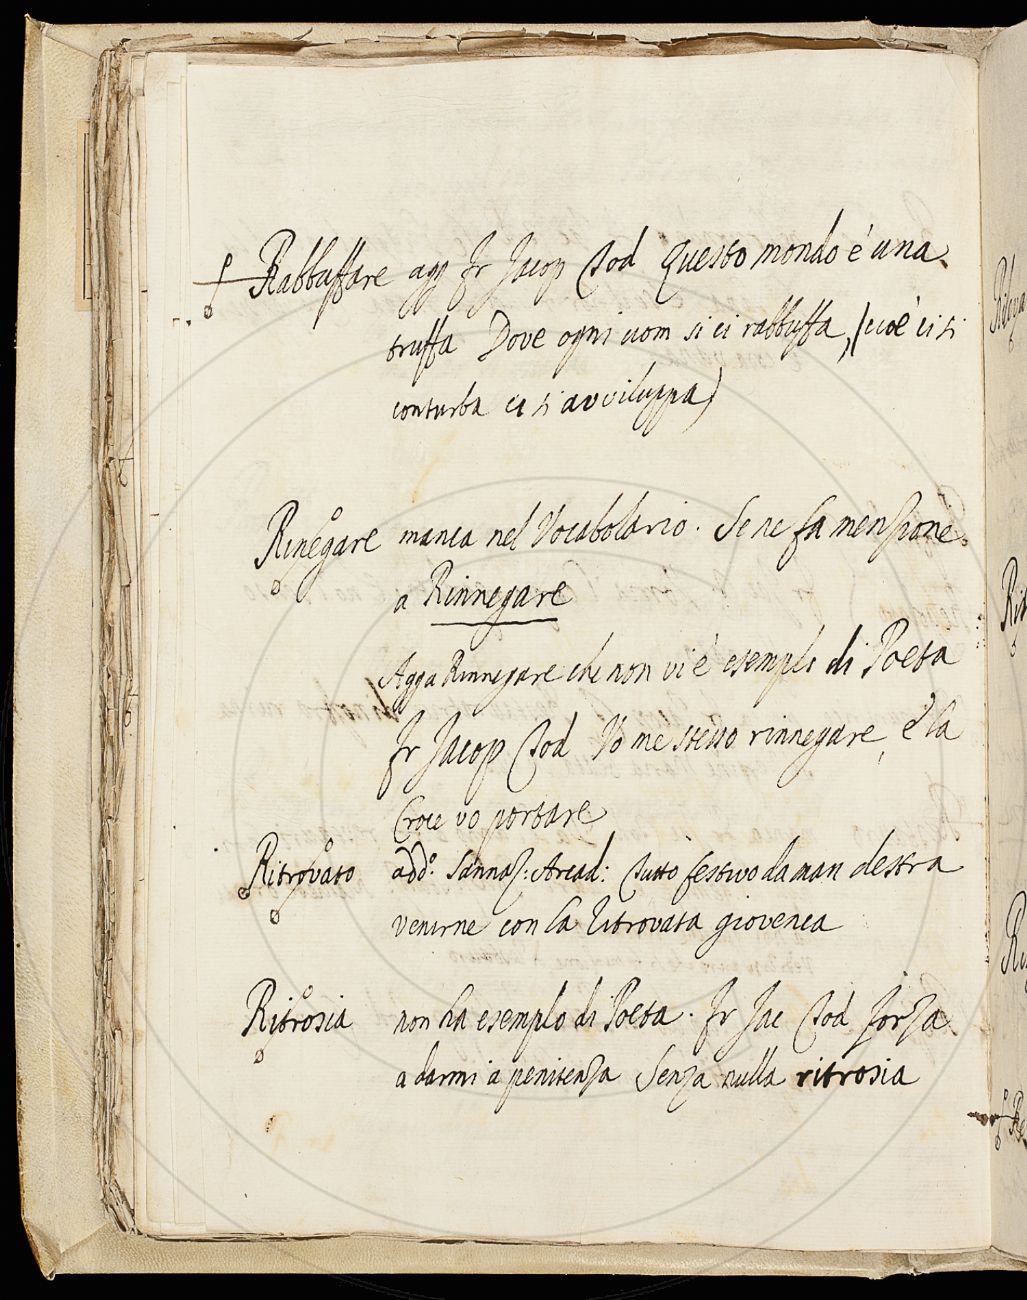 Rabbuffare agg Fr Jacop Tod Questo mondo è una
truffa Dove ogni uom si ci rabbuffa, (cioè ci si
conturba ci si avviluppa)
Rinegare manca nel Vocabolario. Se ne fa menzione
a Rinnegare
Agga Rinnegare che non vi è esempli di Poeta
Fr Jacop Tod Vo me stesso rinnegare, e la
Croce vo portare
Ritrovato add.º Sannaz: Arcad: Tutto festivo da man destra
venirne con la ritrovata giovenca
Ritrosia non ha esemplo di Poeta. Fr Jac Tod Forza
a darmi a penitenza Senza nulla ritrosia